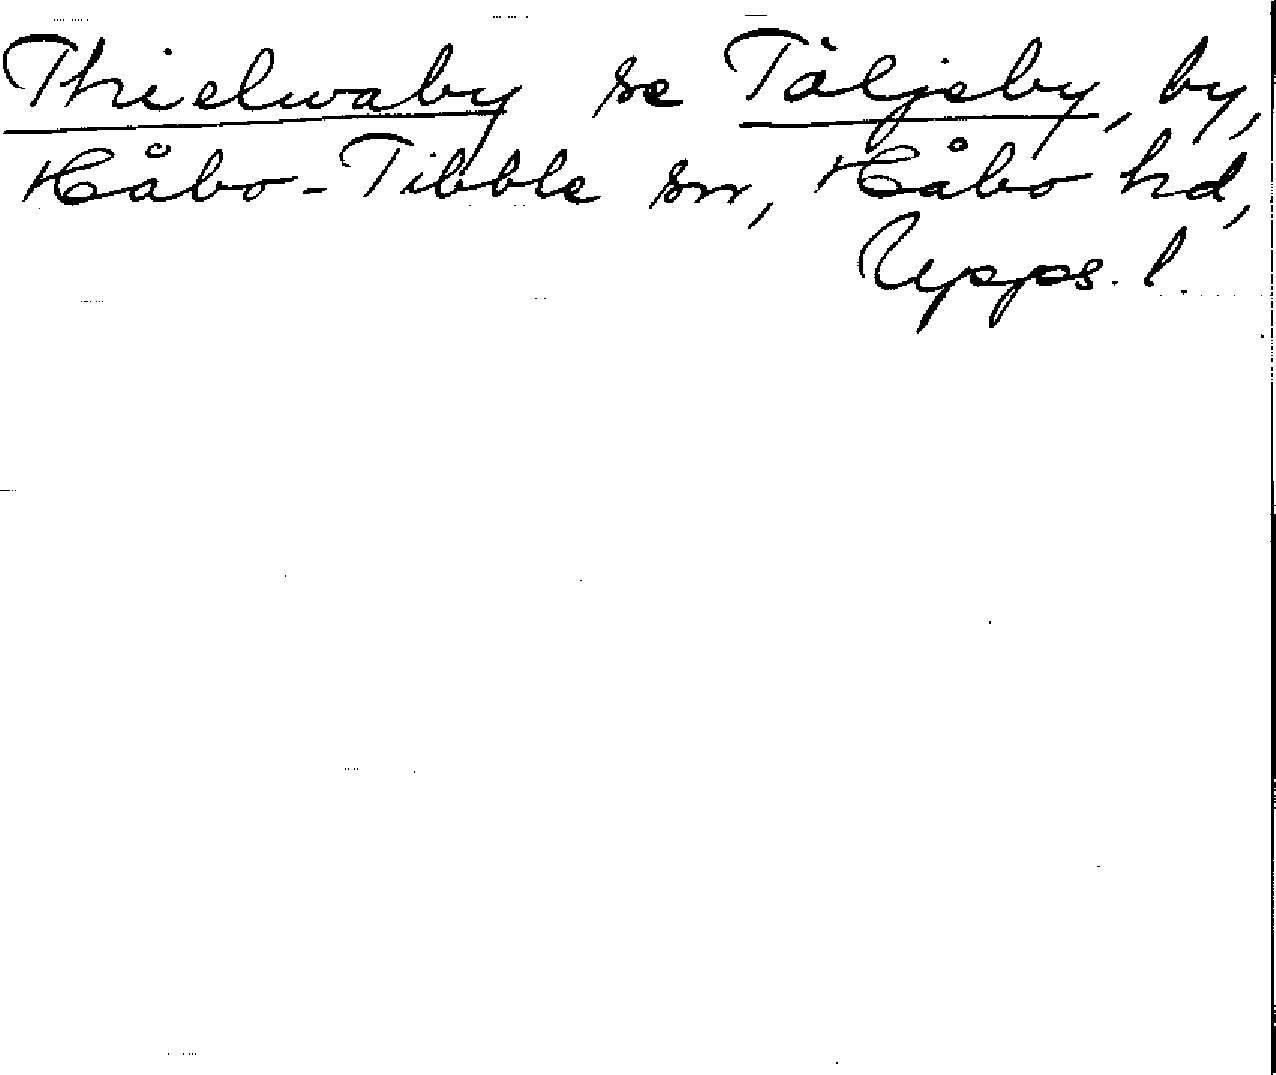 Thielwaby se Täljeby, by,
Håbo-Tibble sn, Håbo hd,
Upps. l.